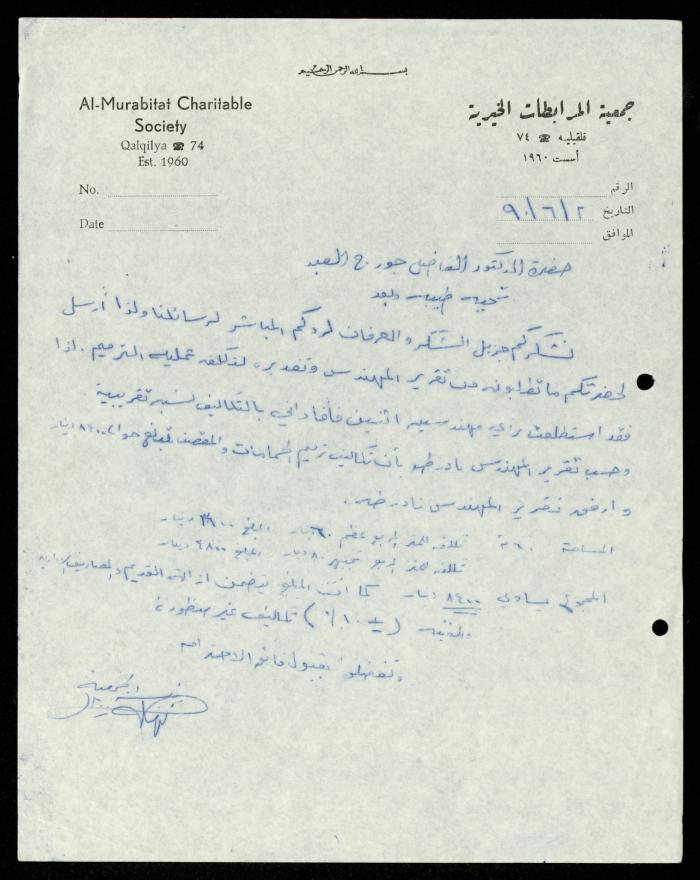 بسم الله الرحمن الرحيم
Al-Murabitat Charitable
Society
Qalqilya ☎ 74
Est. 1960
No.
Date
جمعية المرابطات الخيرية
قلقيليه ☎ ٧٤
أسست ١٩٦٠
الرقم
التاريخ ٩٠/٦/٢
الموافق
حضرة الدكتور الفاضل جورج العبد
تحيه طيبه وبعد
نشكركم جزيل الشكر والعرفان لردكم المباشر لرسائلنا ولذا أرسل
لحضرتكم ما تطلبونه من تقرير المهندس وتقديره لتكلفه عمليه الترميم . لذا
فقد استطلعت برأي مهندسين اثنين فأفاداني بالتكاليف نسبه تقريبية
وحسب تقرير المهندس نادر طه بأن تكاليف ترميم الحمامات والمقصف تبلغ حوالي ٨٤٠٠ دينار
وارفق تقرير المهندس نادر طه .
المساحة ٦٠ م٢ تكلفه المتر المربع عظم ٦٠ دينار المبلغ ٣٦٠٠ دينار
تكلفه المتر المربع تجهيز ٨٠ دينار المبلغ ٤٨٠٠ دينار
المجموع يساوي ٨٤٠٠ دينار كما أن المبلغ يتضمن ازالة القديم والمصاريف الإدارية
والفنيه ( ± ١٠ ٪ ) تكاليف غير منظورة
وتفضلوا بقبول فائق الاحترام
رئيسة الجمعية